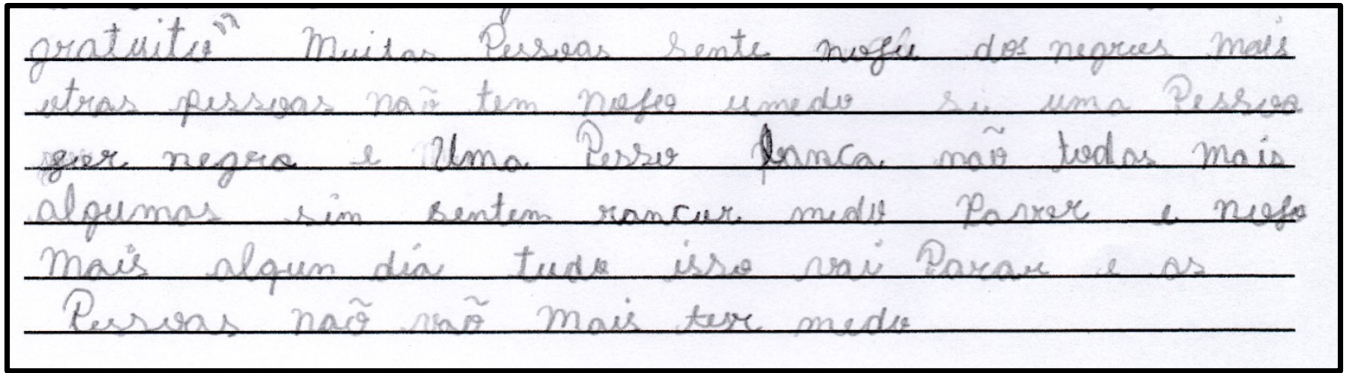 gratuito" Muitas Pessoas sente nojo dos negros mais
otras pessoas não tem nojo umedo si uma Pessoa
ser negra e Uma Pesso banca não todas mais
algumas sim sentem rancor medo Pavor e nojo
Mais algun dia tudo isso vai Parar e as
Pessoas não vão Mais ter medo